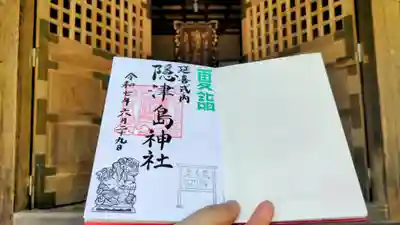 夏詣
延喜式内
隠津島神社
令和七年六月二十九日